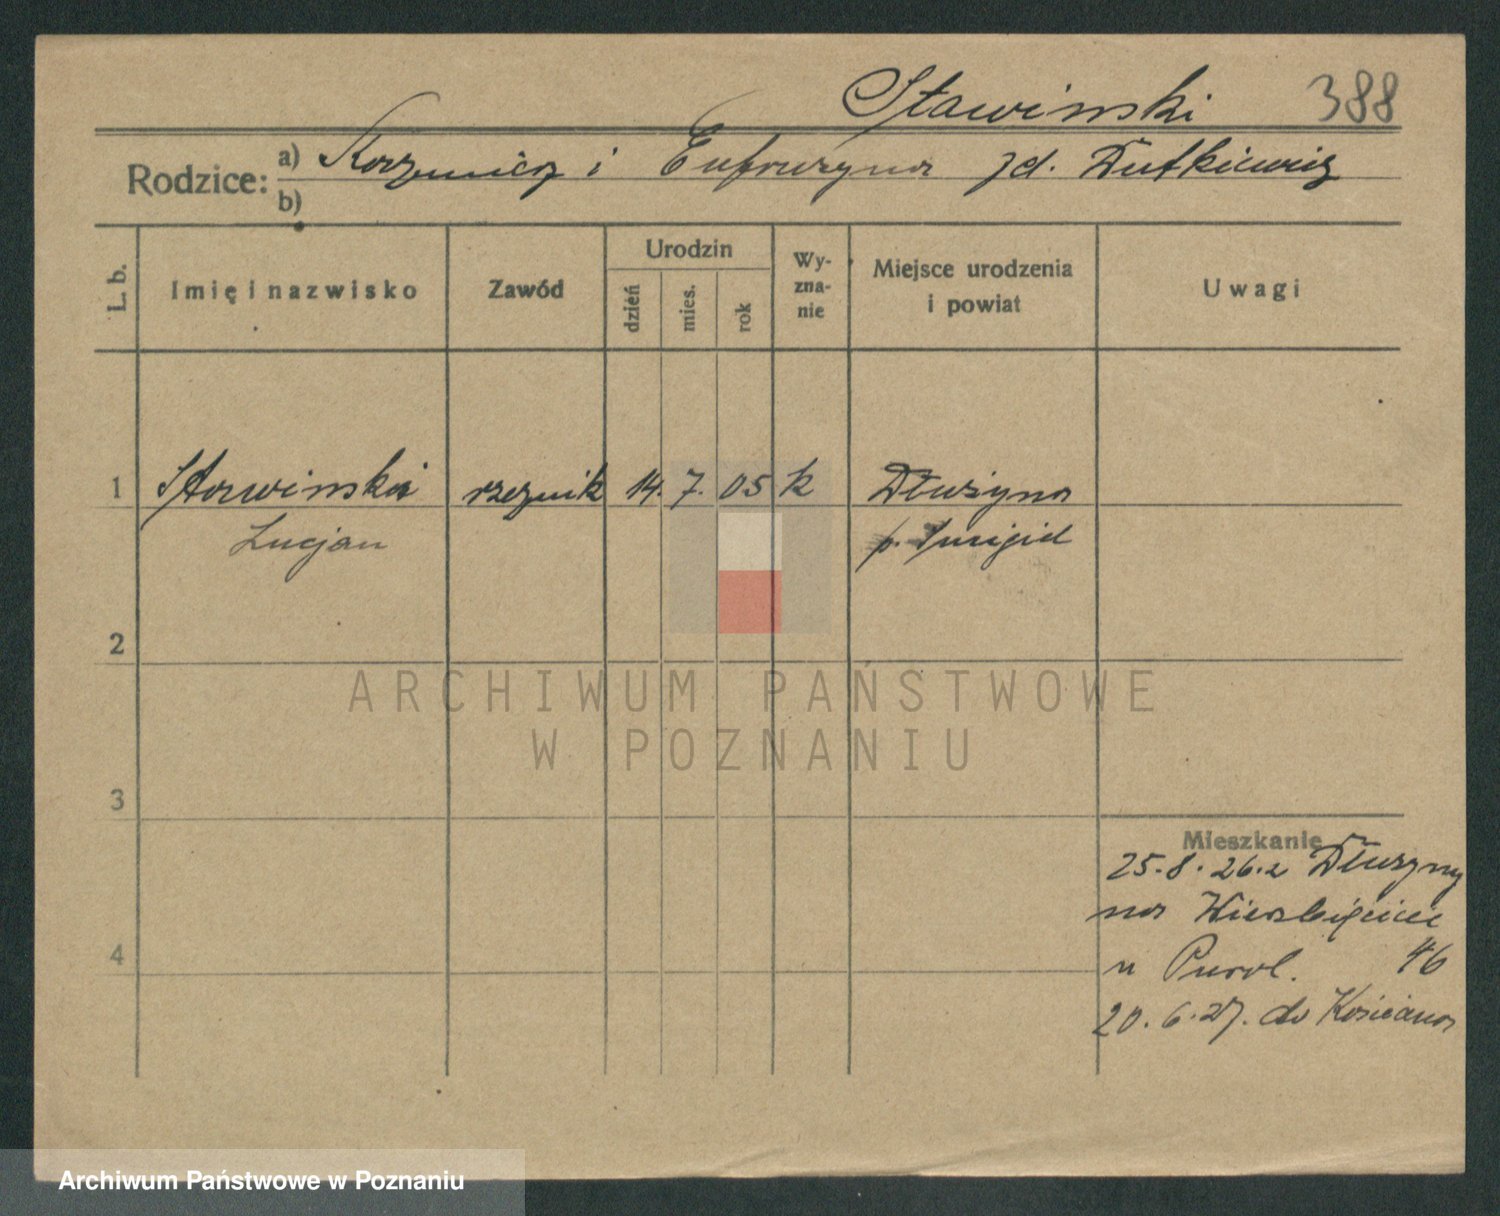 Stawinski 388
Rodzice: a) Kazmierz i Eufrozyna zd. Dutkiewicz
b)
L. b. Imię i nazwisko Zawód Urodzin dzień mies. rok Wy-zna-nie Miejsce urodzenia i powiat Uwagi
1 Stawinski rzeznik 14. 7. 05 k Dłużyna
Lucjan p. Smigiel
2
ARCHIWUM PAŃSTWOWE
W POZNANIU
3
Mieszkanie
25.8.26. z Dłużyny
na Wierzbięcice
u Purol. 46
4
20.6.27. do Kościana
Archiwum Państwowe w Poznaniu